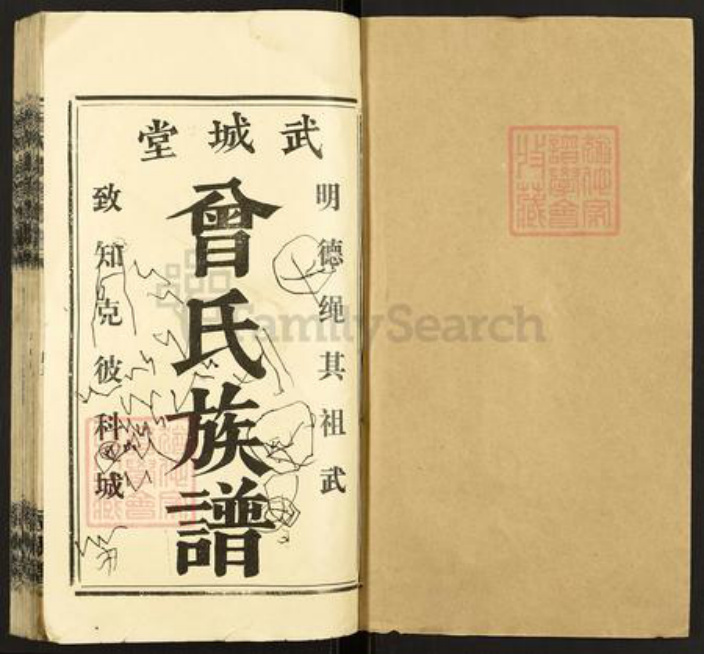 武城堂
明德绳其祖武
曾氏族譜
致知克彼科城
FamilySearch